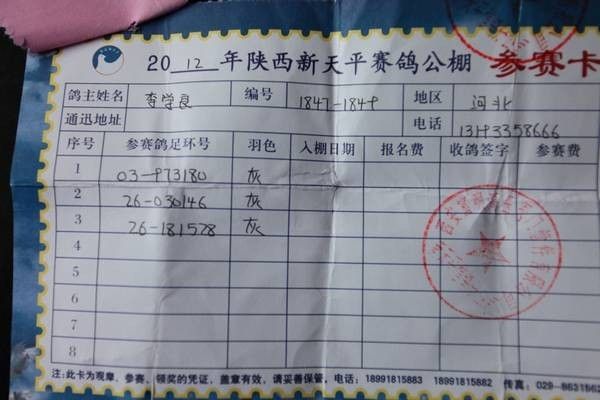 2012年陕西新天平赛鸽公棚 参赛卡
鸽主姓名 李学良 编号 1847-1849 地区 河北
通迅地址 电话 13193358666
序号 参赛鸽足环号 羽色 入棚日期 报名费 收鸽签字 参赛费
1 03-973180 灰
2 26-030146 灰
3 26-181528 灰
4
5
6
7
8
注:此卡为观摩、参赛、领奖的凭证,盖章有效,请妥善保管,电话:18991815883 18991815882 传真:029-8631562